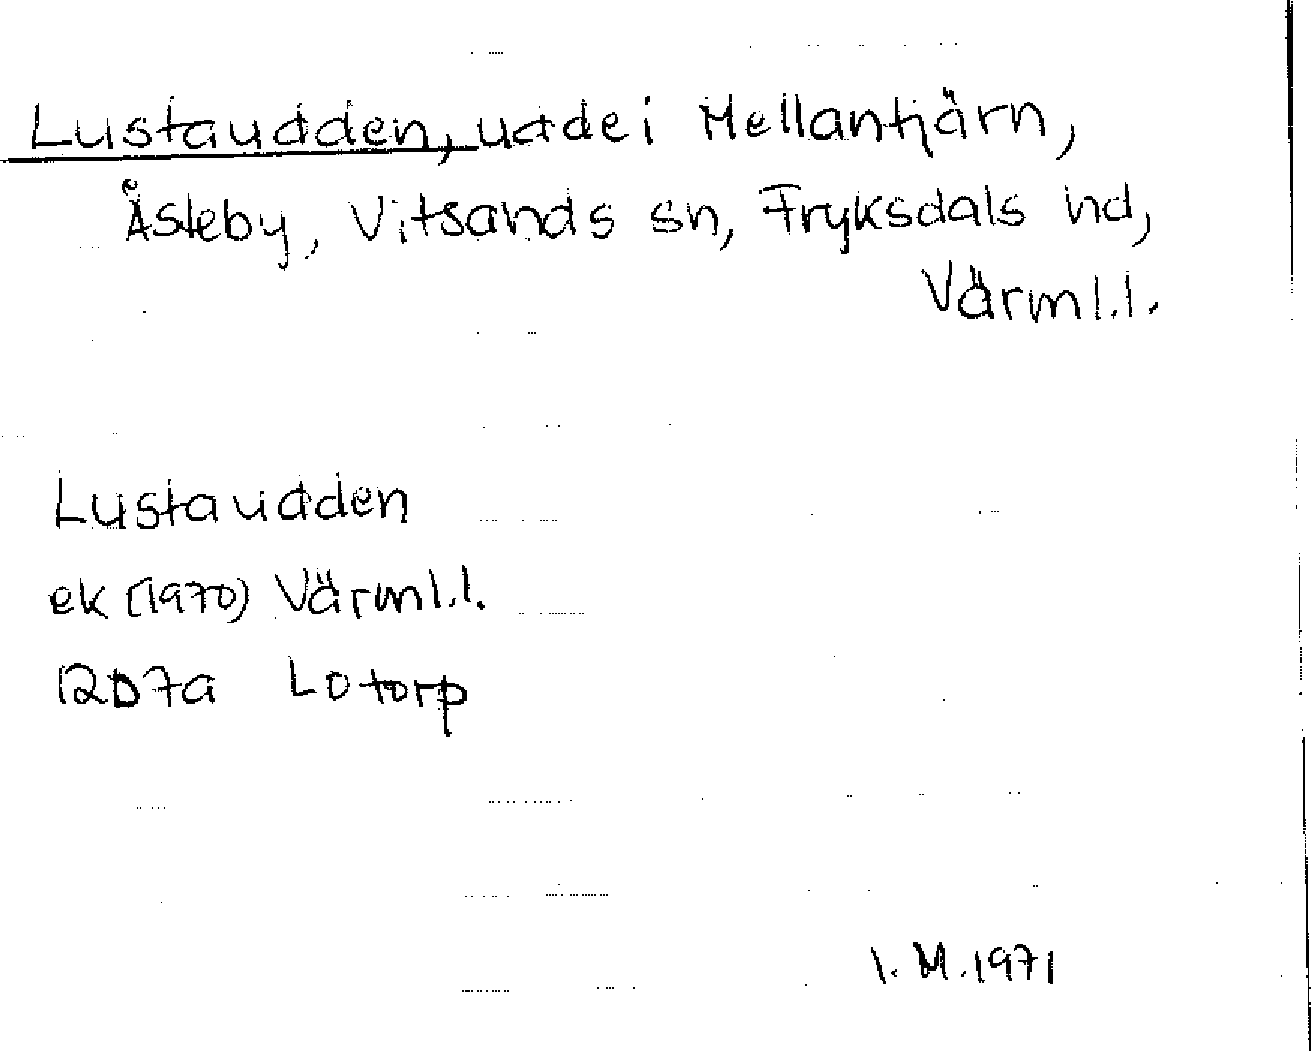 Lustaudden, udde i Mellantjärn,
Åsteby, Vitsands sn, Fryksdals hd,
Värml.l.
Lustaudden
ek (1970) Värml.l.
12D7a Lotorp
I.M.1971